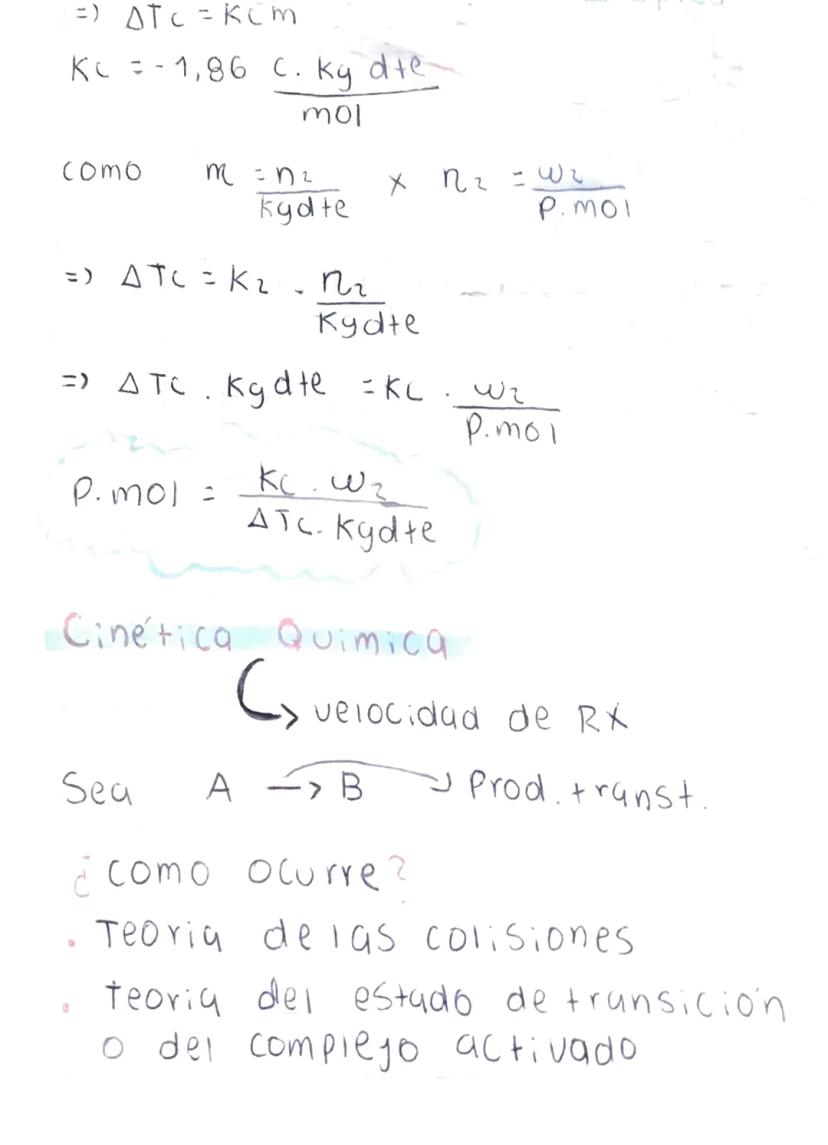 =) ΔTc = Kcm
Kc = -1,86 C. Kg dte / mol
como m = n2 / kgdte x n2 = w2 / P.mol
=) ΔTc = K2 . n2 / Kgdte
=) ΔTc . Kgdte = Kc . w2 / P.mol
P.mol = Kc . w2 / ΔTc. Kgdte
Cinética Quimica
velocidad de RX
Sea A → B Prod. transt.
¿como ocurre?
. Teoria de las colisiones
. teoria del estado de transición
o del complejo activado